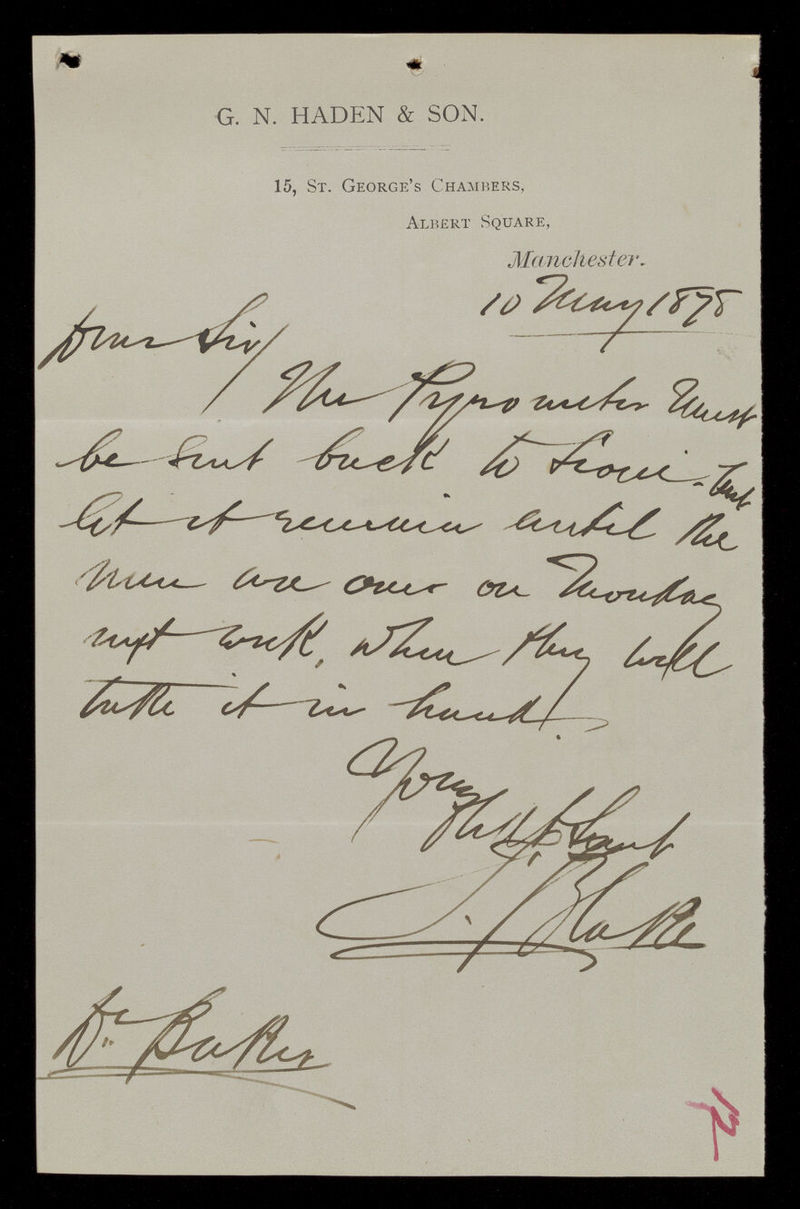 G. N. HADEN & SON.
15, ST. GEORGE'S CHAMBERS,
ALBERT SQUARE,
Manchester.
10 May 1878
Dear Sir/
The Pyrometer must
be sent back to - but
let it remain until the
men are over on Monday
next week, when they will
take it in hand.
Yours
J. Blake
Dr. Baker
12